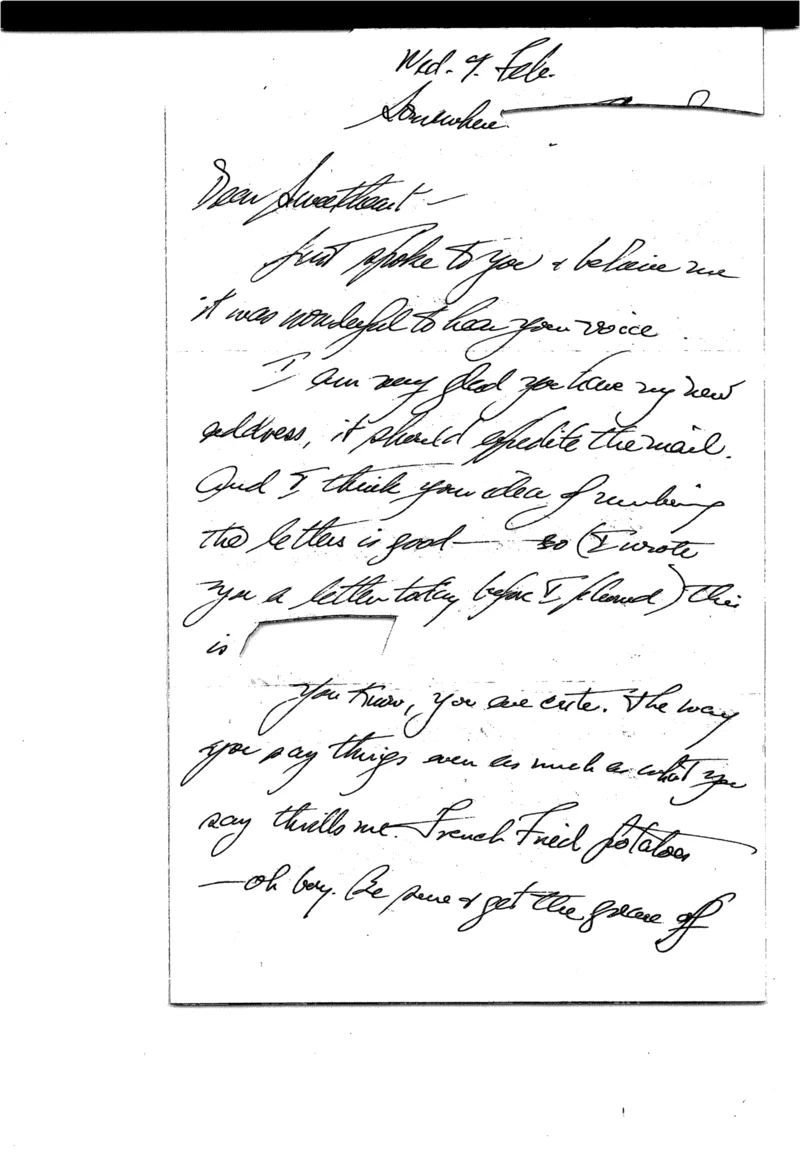 Wed. 9. Feb.
Somewhere.
Dear Sweetheart —
Just spoke to you & believe me
it was wonderful to hear your voice.
I am very glad you have my new
address, it should expedite the mail.
And I think your idea of numbering
the letters is good — so (I wrote
you a letter today before I phoned) this
is
You know, you are cute. The way
you say things even as much as what you
say thrills me. French Fried potatoes
— oh boy. Be sure & get the grease off